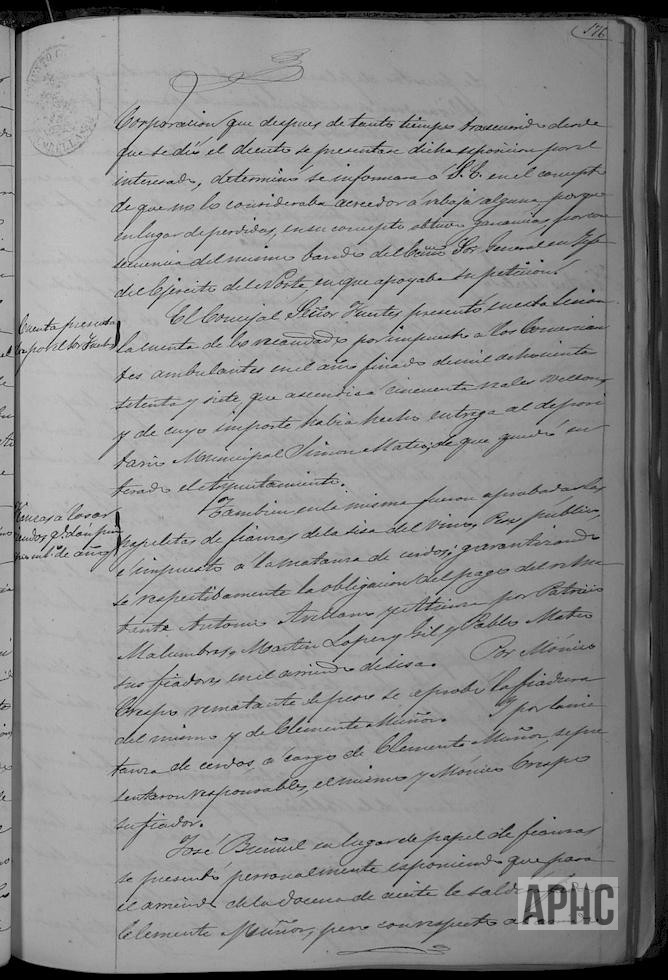 176
Corporacion que despues de tanto tiempo trascurrido desde
que se dió el decreto se presentase dicha esposicion por el
interesado, determinó se informara a S.E. en el concepto
de que no lo consideraba acreedor á rebaja alguna porque
en lugar de perdidas, en su concepto obtuvo ganancias por con
secuencia del mismo bando del Excmo Sor General en Jefe
del Ejercito del Norte en que apoyaba su peticion.
Cuenta presenta
da por el Sor Fuentes
El Concejal Señor Fuentes presentó en esta Sesion
la cuenta de lo recaudado por impuesto a los Comercian
tes ambulantes en el año finado de mil ochocientos
setenta y siete, que ascendia á cincuenta reales vellon,
y de cuyo importe habia hecho entrega al deposi
tario Municipal Simon Mateo; de que quedó en
terado el Ayuntamiento.
Fianzas a los ar
riendos
de año
Tambien en la misma fueron aprobadas las
papeletas de fianzas de la sisa del Vino, Peso público,
é impuesto á la matanza de cerdos; garantizando
se respectibamente la obligacion del pago del rema
tante Antonio Arellano y Atienza por Patricio
Malumbres, Martin Lopez y Gil y Pablo Mateo
sus fiadores en el arriendo de sisa. Por Mónico
Crespo rematante de peso se aprobó la fiadura
del mismo y de Clemente Muñoz. Y por la ma
tanza de cerdos á cargo de Clemente Muñoz se pre
sentaron responsables, el mismo y Mónico Crespo
su fiador.
José Buñuel en lugar de papel de fianzas
se presentó personalmente esponiendo que para
el arriendo de la docena de aceite le saldria
Clemente Muñoz, pero con respecto a
APHC